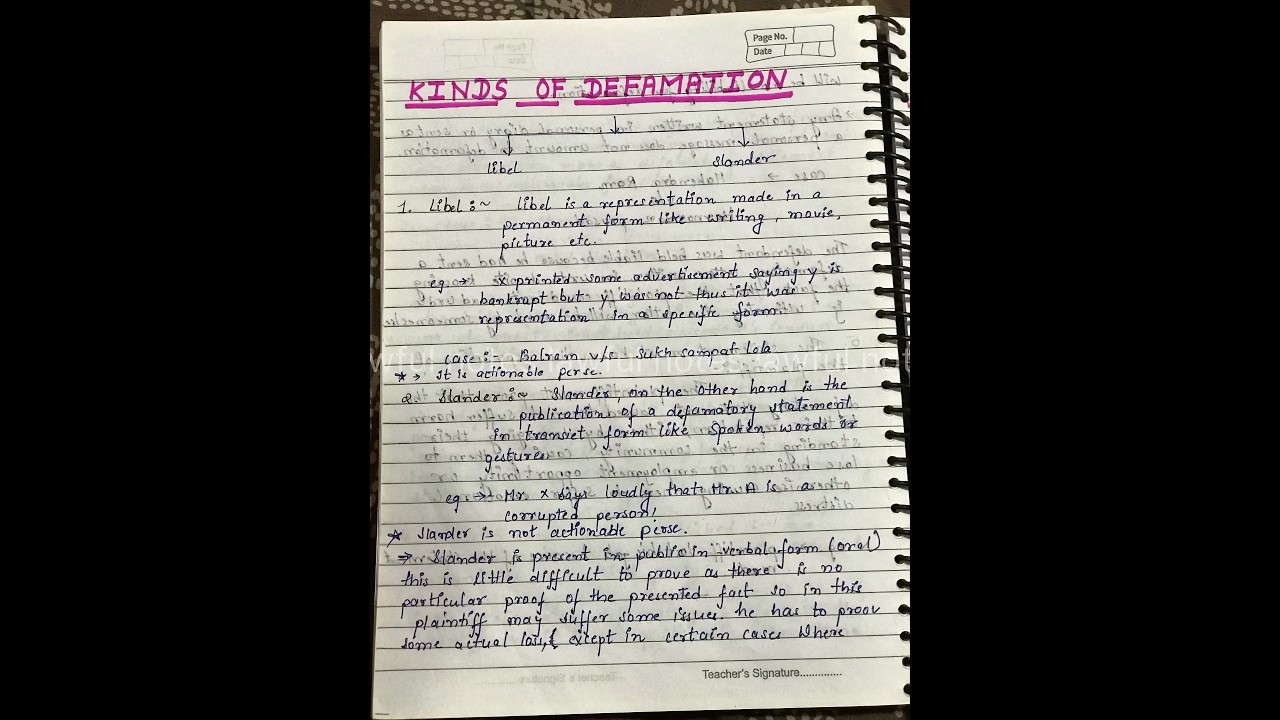 Page No.
Date
KINDS OF DEFAMATION
Libel
Slander
1. Libel :~ Libel is a representation made in a
permanent form like writing, movie,
picture etc.
eg. → X printed some advertisement saying y is
bankrupt but y was not thus it was
representation in a specific form.
case :- Balram v/s Sukh sampat Lola
* → It is actionable perse.
2. Slander :~ Slander, on the other hand is the
publication of a defamatory statement
in transiet form like spoken words or
gestures
eg. → Mr X says loudly that Mr. A is a
corrupted person,
* Slander is not actionable perse.
→ Slander is present in public in verbal form (oral)
this is little difficult to prove as there is no
particular proof of the presented fact so in this
plaintiff may suffer some issues. he has to proov
some actual loss, except in certain cases where
Teacher's Signature..............